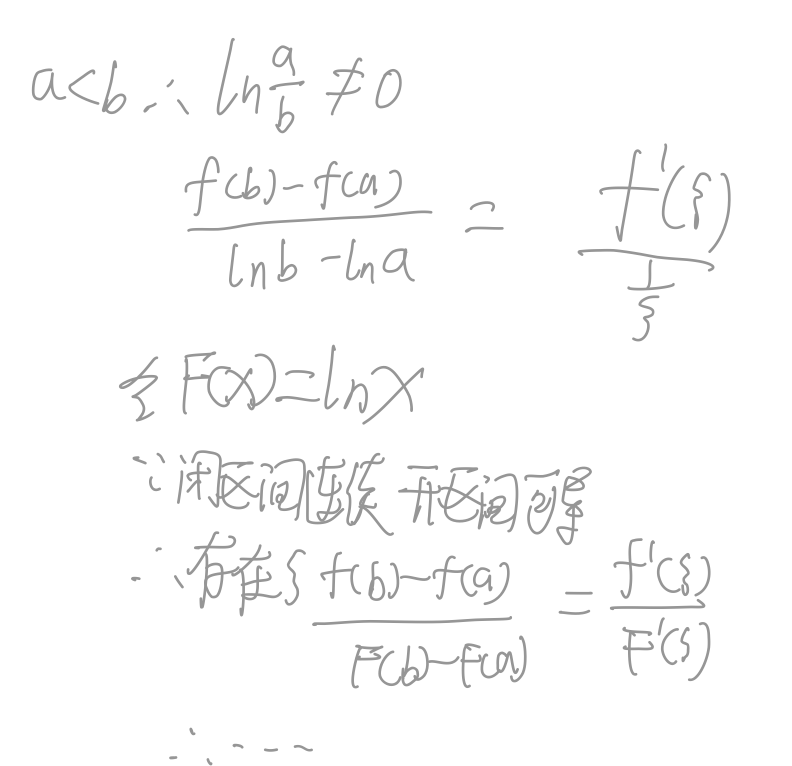 a<b ∴ ln a/b ≠0
(f(b)-f(a))/(lnb-lna) = f'(ξ)/(1/ξ)
令F(x)=lnx
∵闭区间连续 开区间可导
∴存在ξ (f(b)-f(a))/(F(b)-F(a)) = f'(ξ)/F'(ξ)
∴---